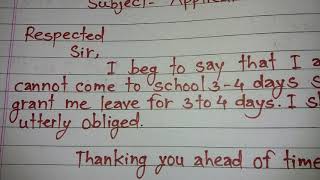 Subject- Applicat
Respected
Sir,
I beg to say that I a
cannot come to school 3-4 days S
grant me leave for 3 to 4 days. I s
utterly obliged.
Thanking you ahead of time